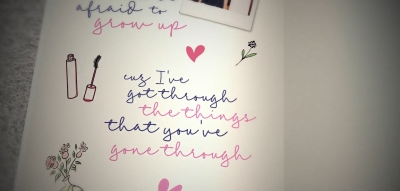 afraid to
grow up
cuz I've
got through
the things
that you've
gone through